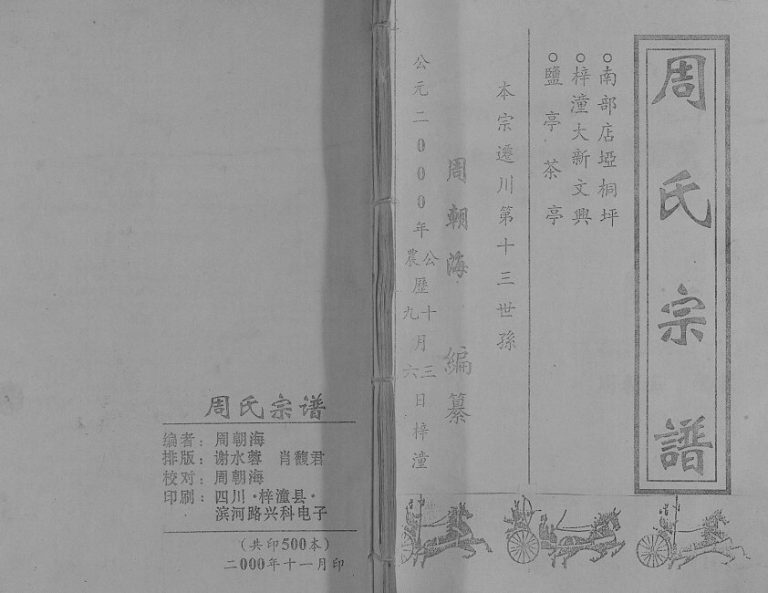 周氏宗譜
○南部店埡桐坪
○梓潼大新文興
○鹽亭茶亭
本宗遷川第十三世孫
周朝海 編纂
公元二000年公曆十月三日梓潼
農 九 六
周氏宗谱
编者：周朝海
排版：谢水蓉 肖馥君
校对：周朝海
印刷：四川·梓潼县·
滨河路兴科电子
（共印500本）
二000年十一月印